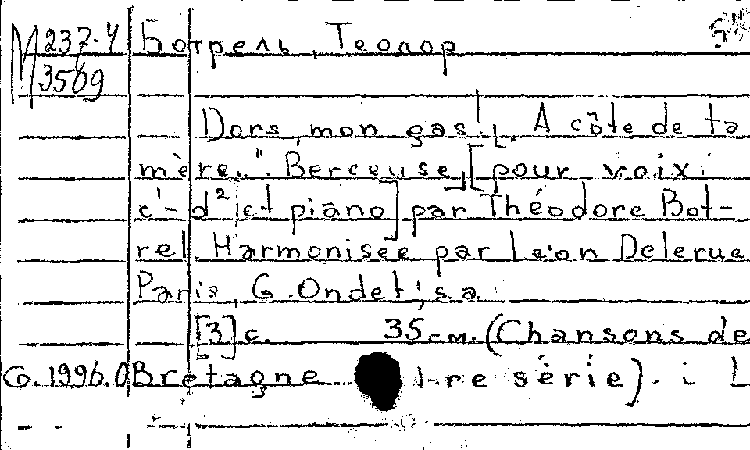 М 237-4 Ботрель, Теодор
3569
Dors, mon gas!.. "A côte de ta
mère..". Berceuse] [pour voix:
c'-d² et piano] par Théodore Bot-
rel. Harmonisée par Léon Delerue
Paris, G. Ondet, s.a.
[3] c. 35 см. (Chansons de
Co. 1996.0 Bretagne 1-re série). i L